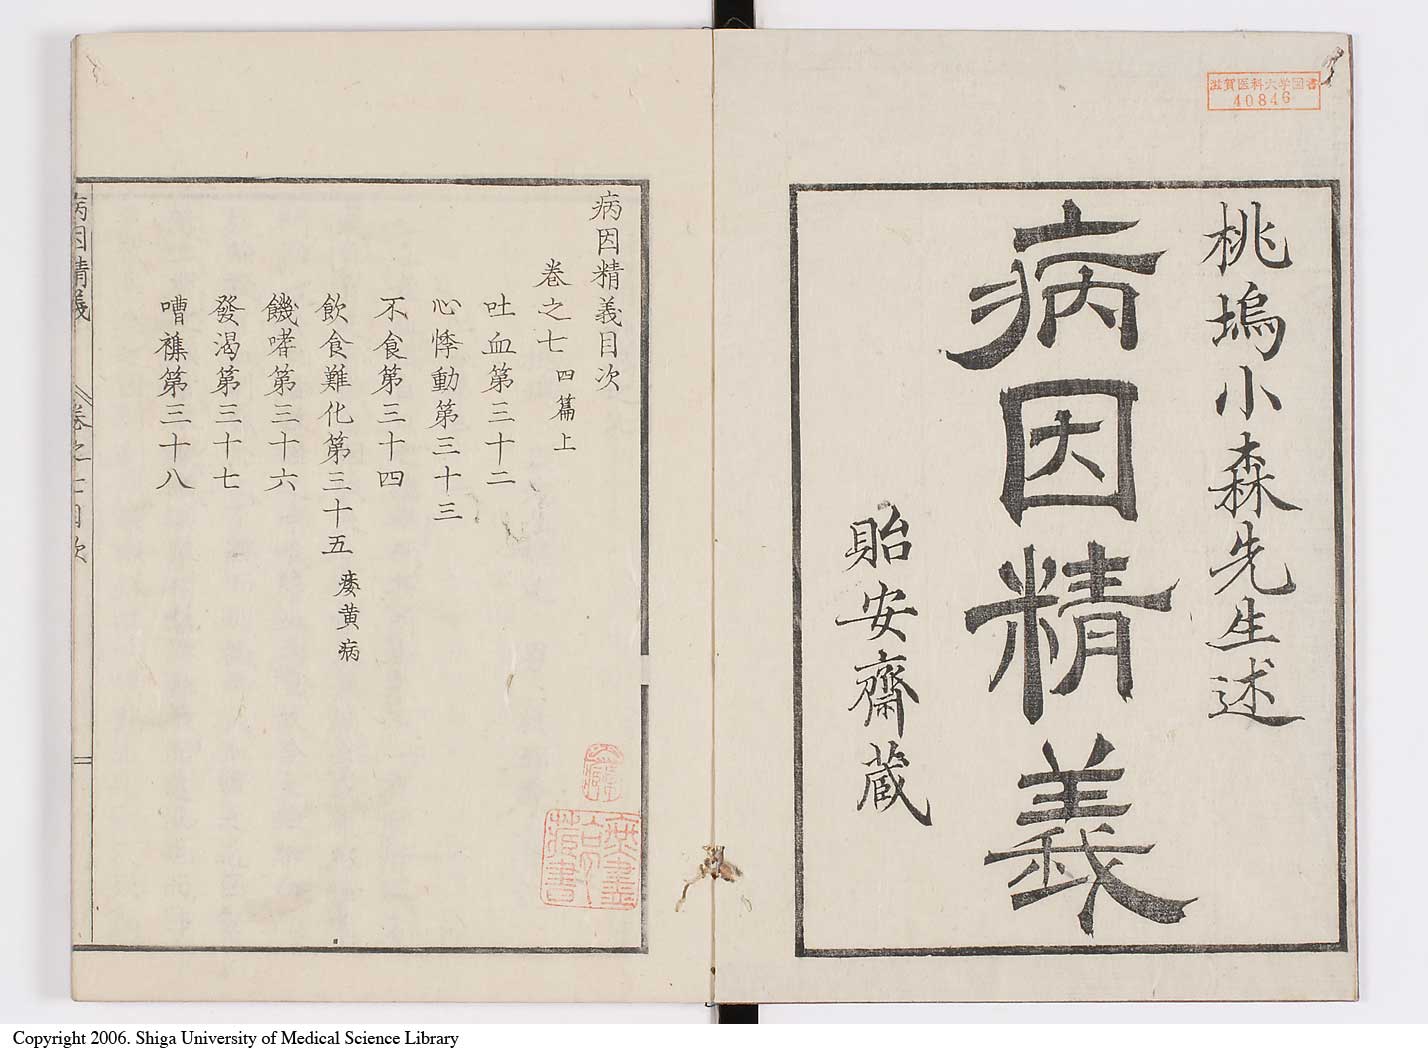 滋賀医科大学図書
40846
桃塢小森先生述
病因精義
貽安齋蔵
病因精義目次
卷之七 四篇上
吐血第三十二
心悸動第三十三
不食第三十四
飲食難化第三十五 痿黄病
饑嗜第三十六
發渇第三十七
嘈囃第三十八
病因精義 卷之七目次
Copyright 2006. Shiga University of Medical Science Library